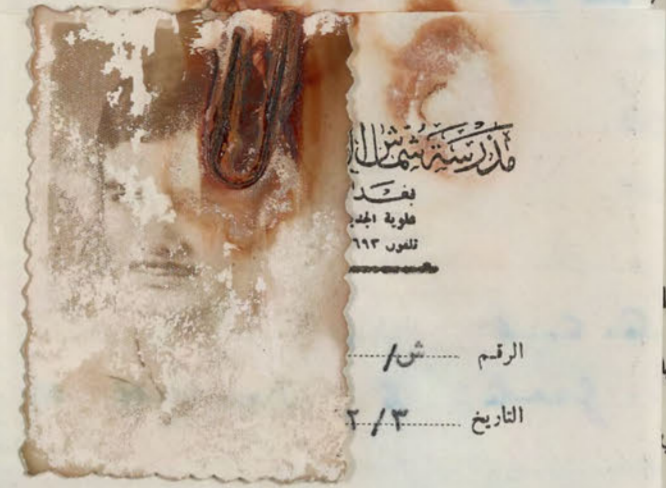 مدرسة شماش
بغد
علوية الجد
تلفون ٦٩٣
الرقم ش/
التاريخ ٣/٢